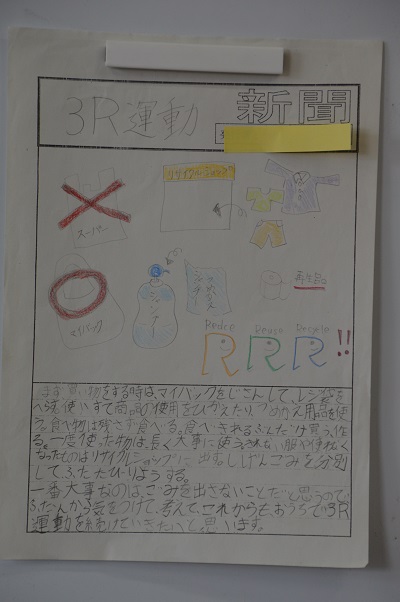 3R運動
新聞
リサイクルショップ
スーパー
マイバック
シャンプー
再生品
Redce Reuse Recycle
R R R !!
まず買い物をする時は、マイバックをじさんして、レジ袋を
へらす。使いすて商品の使用をひかえたり、つめかえ用品を使
う。食べ物は残さず食べる。食べきれるぶんだけ買う、作
る。一度使った物は、長く大事に使う。
なったものはリサイクルショップに出す。しげんごみを分別
してふたたびりようする。
一番大事なのは、ごみを出さないことだと思うので
ふだんから気をつけて、考えて、これからも、おうちで3R
運動を続けていきたいと思います。